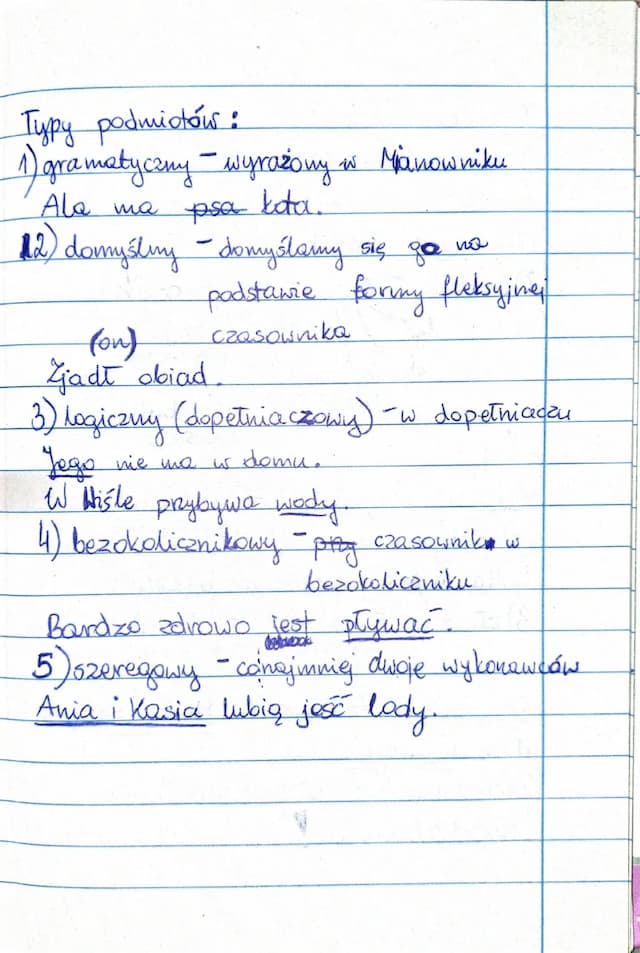 Typy podmiotów:
1) gramatyczny - wyrażony w Mianowniku
Ala ma psa kota.
2) domyślny - domyślamy się go na
podstawie formy fleksyjnej
(on) czasownika
Zjadł obiad.
3) logiczny (dopełniaczowy) - w dopełniaczu
Jego nie ma w domu.
W Wiśle przybywa wody.
4) bezokolicznikowy - przy czasownik w
bezokoliczniku
Bardzo zdrowo jest pływać.
5) szeregowy - conajmniej dwoje wykonawców
Ania i Kasia lubią jeść lody.